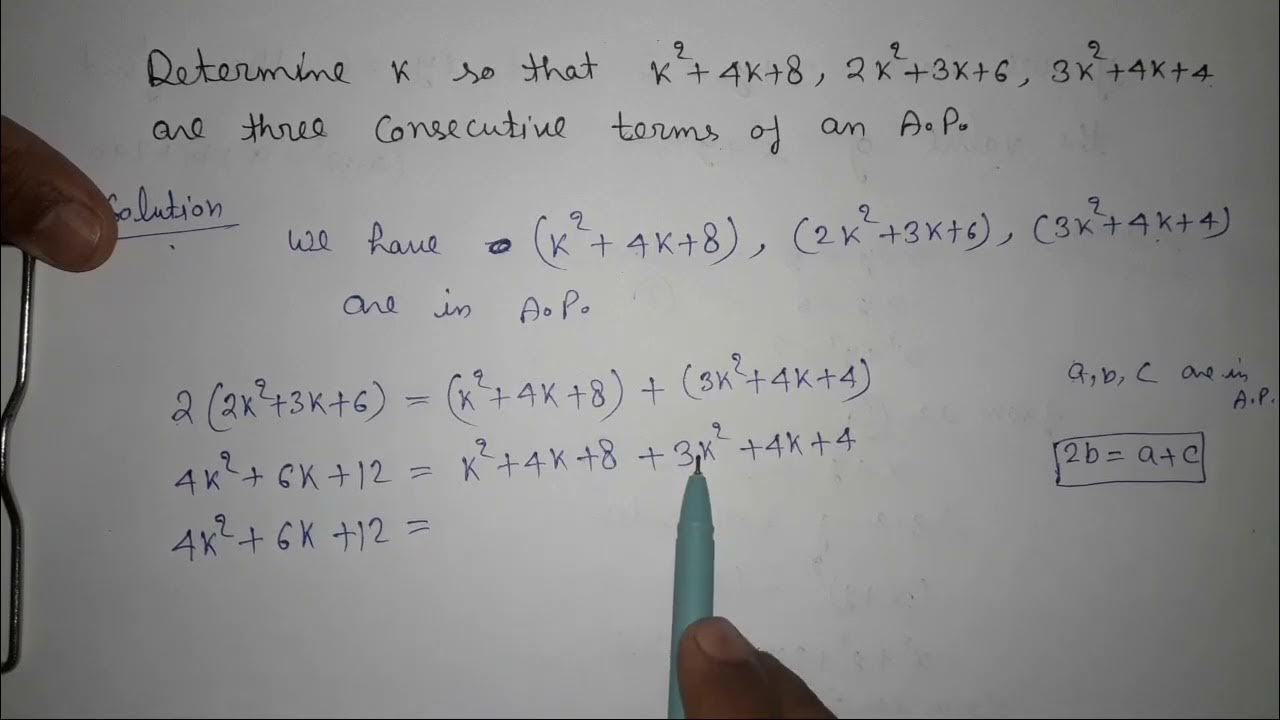 Determine k so that k²+4k+8, 2k²+3k+6, 3k²+4k+4
are three consecutive terms of an A.P.
Solution
we have (k²+4k+8), (2k²+3k+6), (3k²+4k+4)
are in A.P.
2(2k²+3k+6) = (k²+4k+8) + (3k²+4k+4)
4k²+6k+12 = k²+4k+8+3k²+4k+4
4k²+6k+12 =
a, b, c are in
A.P.
2b = a+c